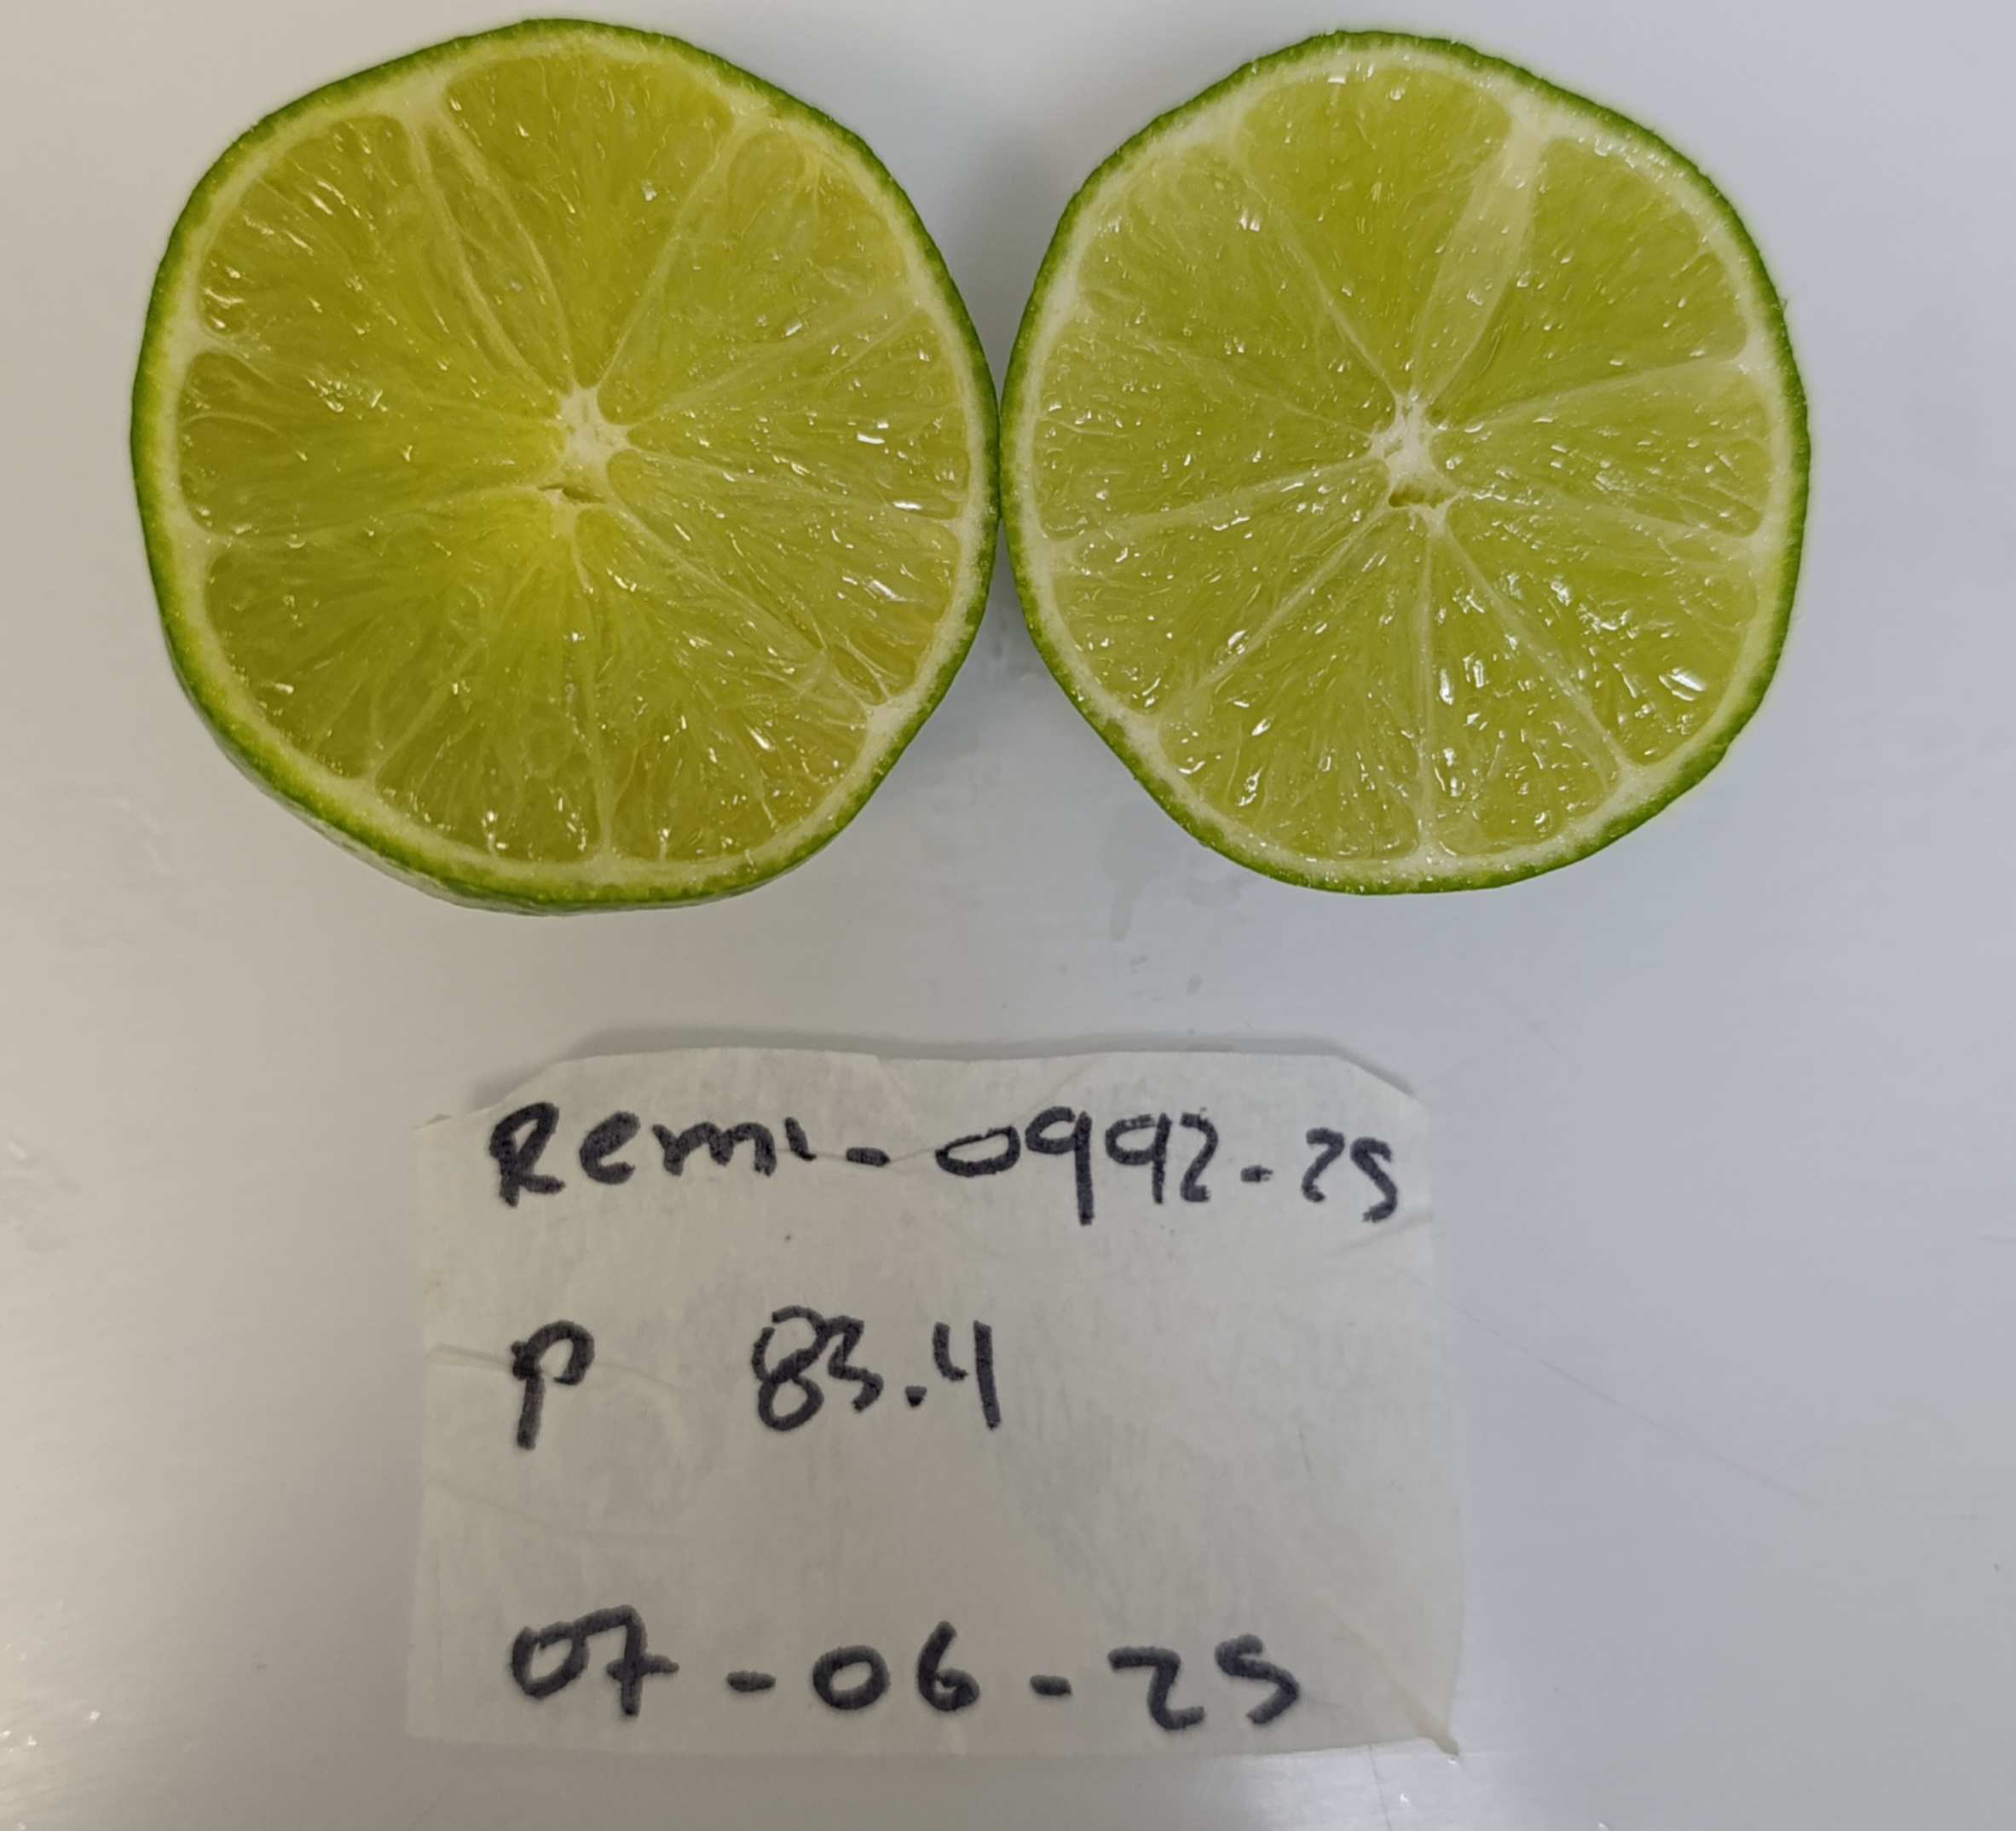 Remi-0992-25
P 83.4
07-06-25